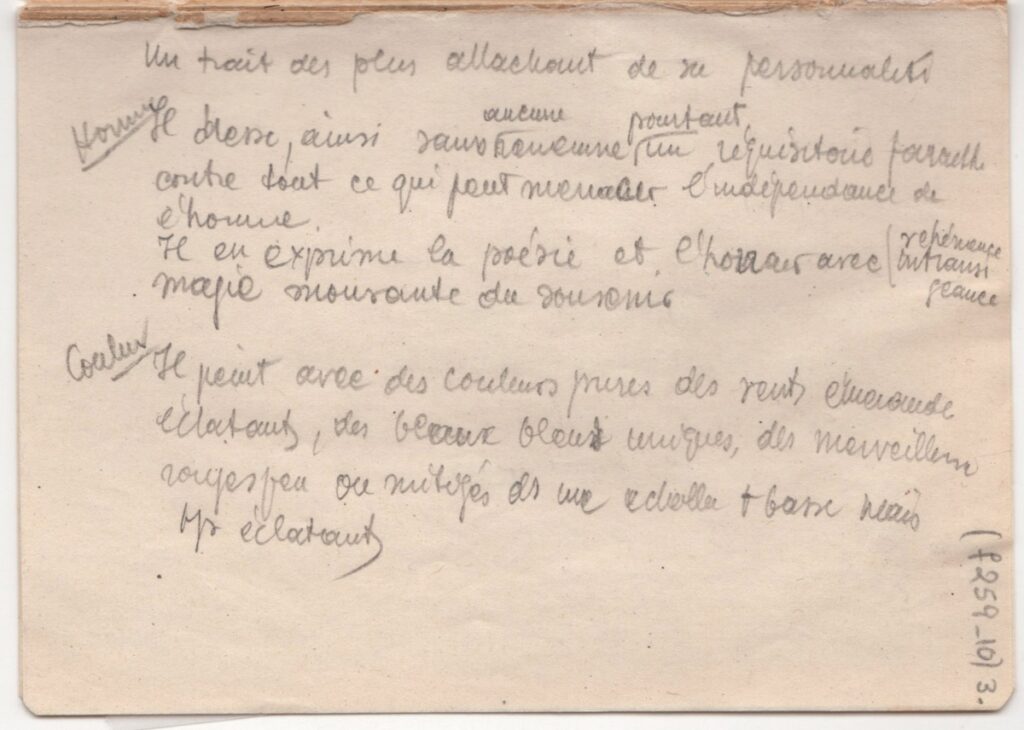 Un trait des plus attachant de sa personnalité
Homme
aucune pourtant,
Il dresse, ainsi sans un réquisitoire
contre tout ce qui peut menacer l'indépendance de
l'homme.
Il en exprime la poésie et l'honner avec (véhémence
intransi
geance
magie mourante du souvenir
Couleur
Il peint avec des couleurs pures des verts émeraude
éclatants, des beaux bleus uniques, des merveilleux
rouges feu ou mitigés ds une echelle + basse mais
tjs éclatants
(f 259_10) 3.